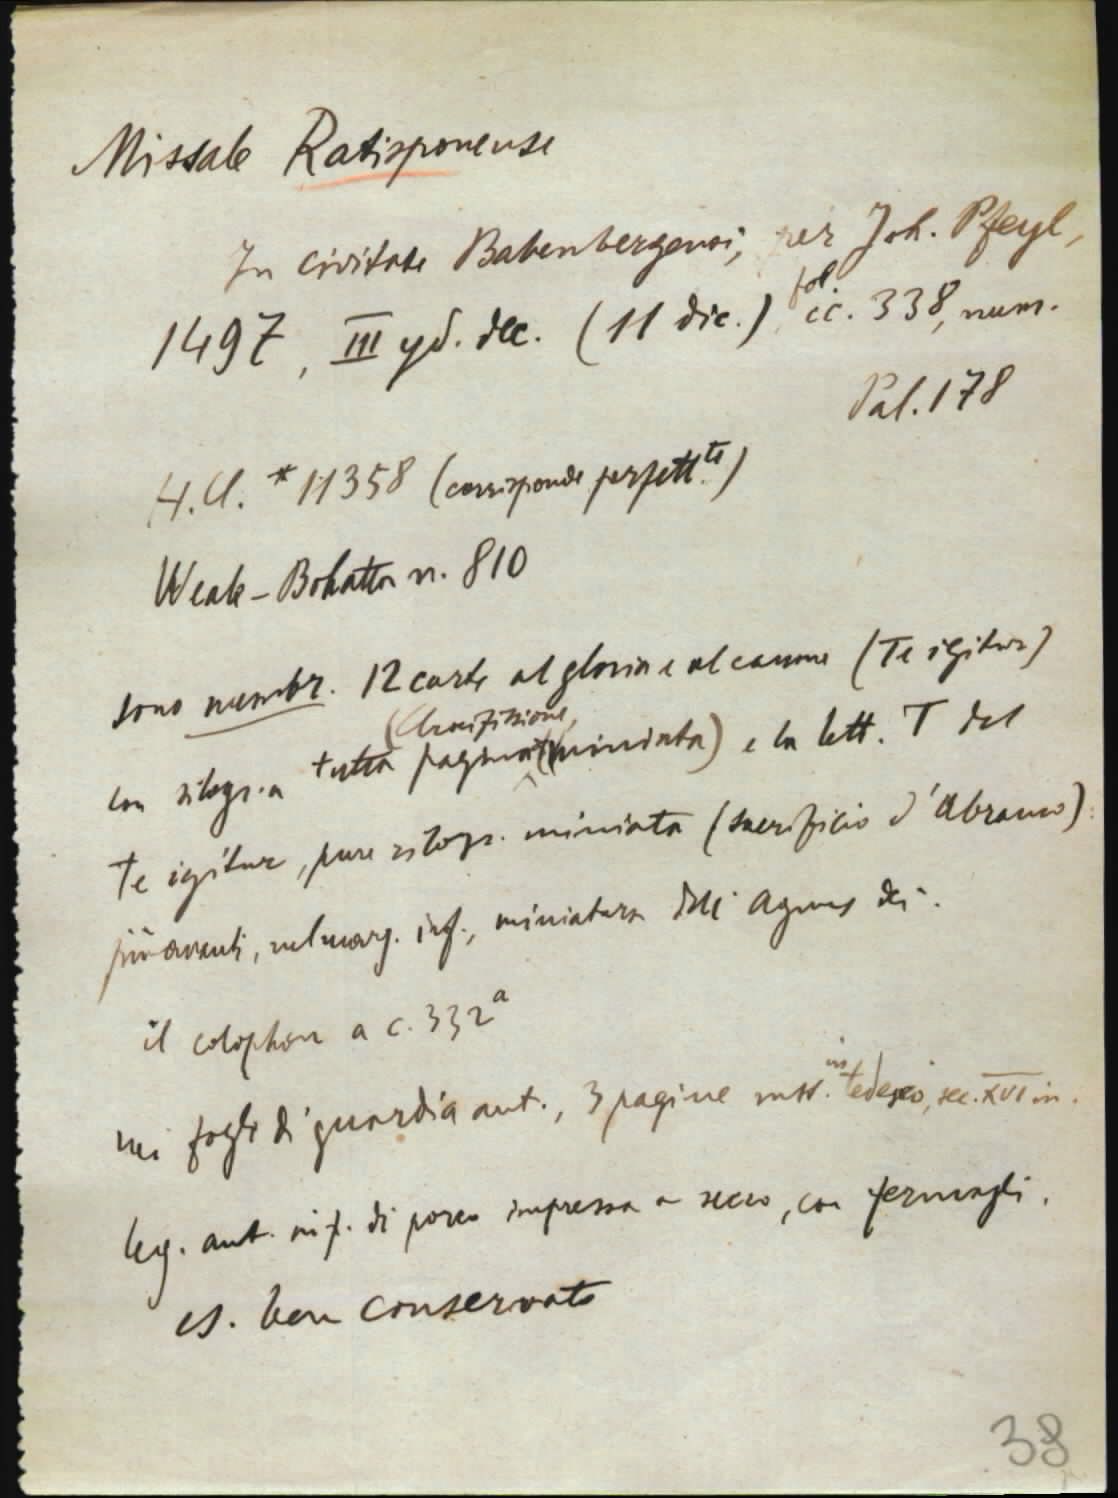 Missale Ratisponense
In civitate Babenbergensi, per Joh. Pfeyl,
1497, III yd. dec. (11 dic.) fol. cc. 338, num.
Pal. 178
H. C. * 11358 (corrisponde perfettte)
Weale-Bohatta n. 810
sono membr. 12 carte al gloria e al canone (Te igitur)
con silogr. a tutta pagina (Crocifissione, miniata) e la lett. T del
Te igitur, pure silogr. miniata (sacrificio d'Abramo):
più avanti, nel marg. inf., miniatura dell' Agnus dei.
il colophon a c. 332a
nei fogli di guardia ant., 3 pagine mss. in tedesco, sec. XVI in.
leg. ant. di porco impressa a secco, con fermagli.
es. ben conservato
38